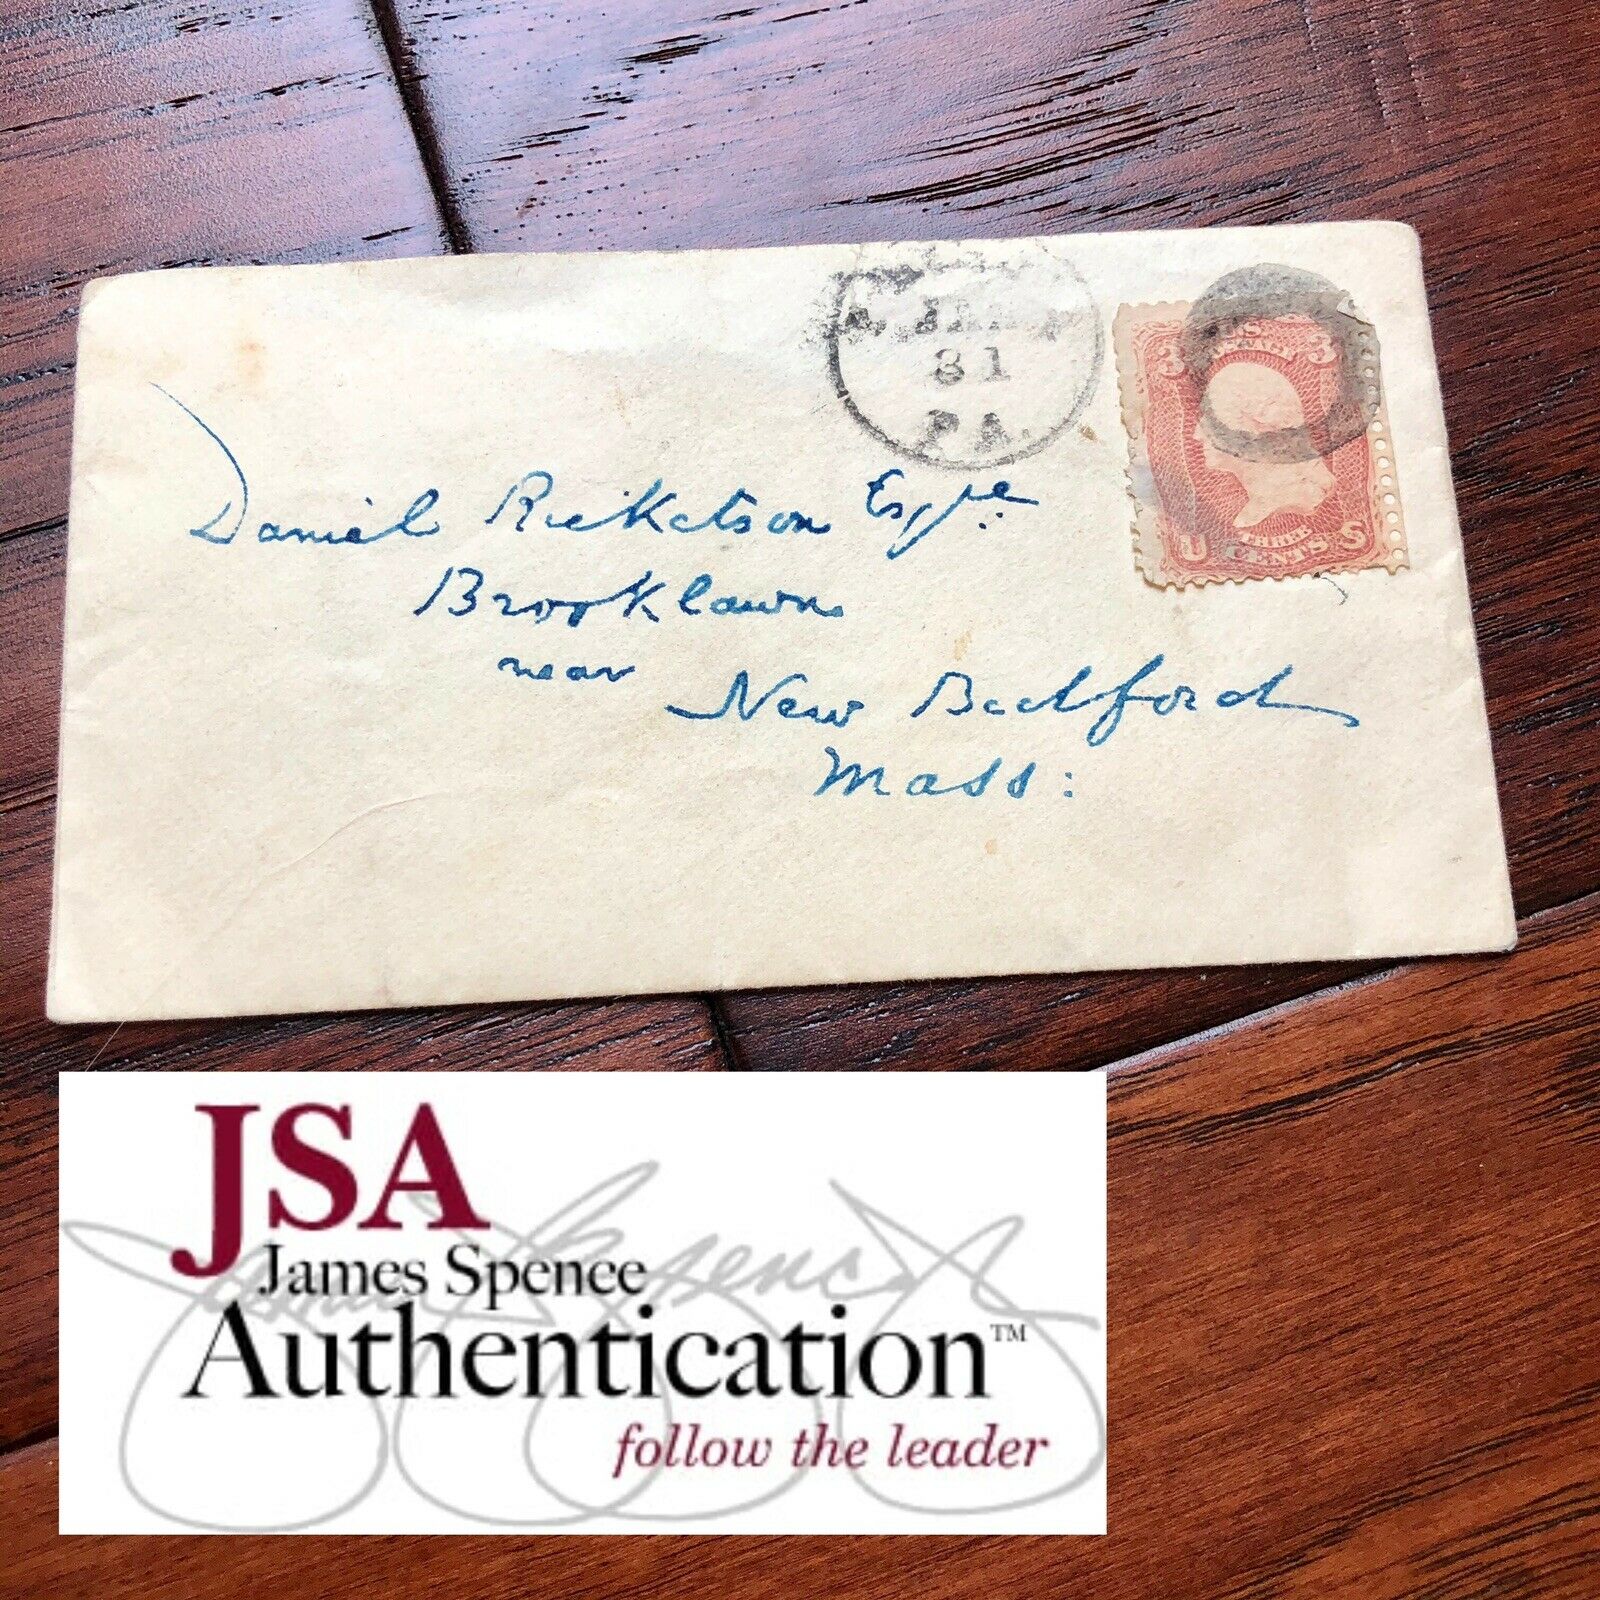 81
PA.
3 3
U THREE CENTS S
Daniel Ricketson Esqre
Brooklawn
near New Bedford
Mass:
JSA
James Spence
Authentication™
follow the leader